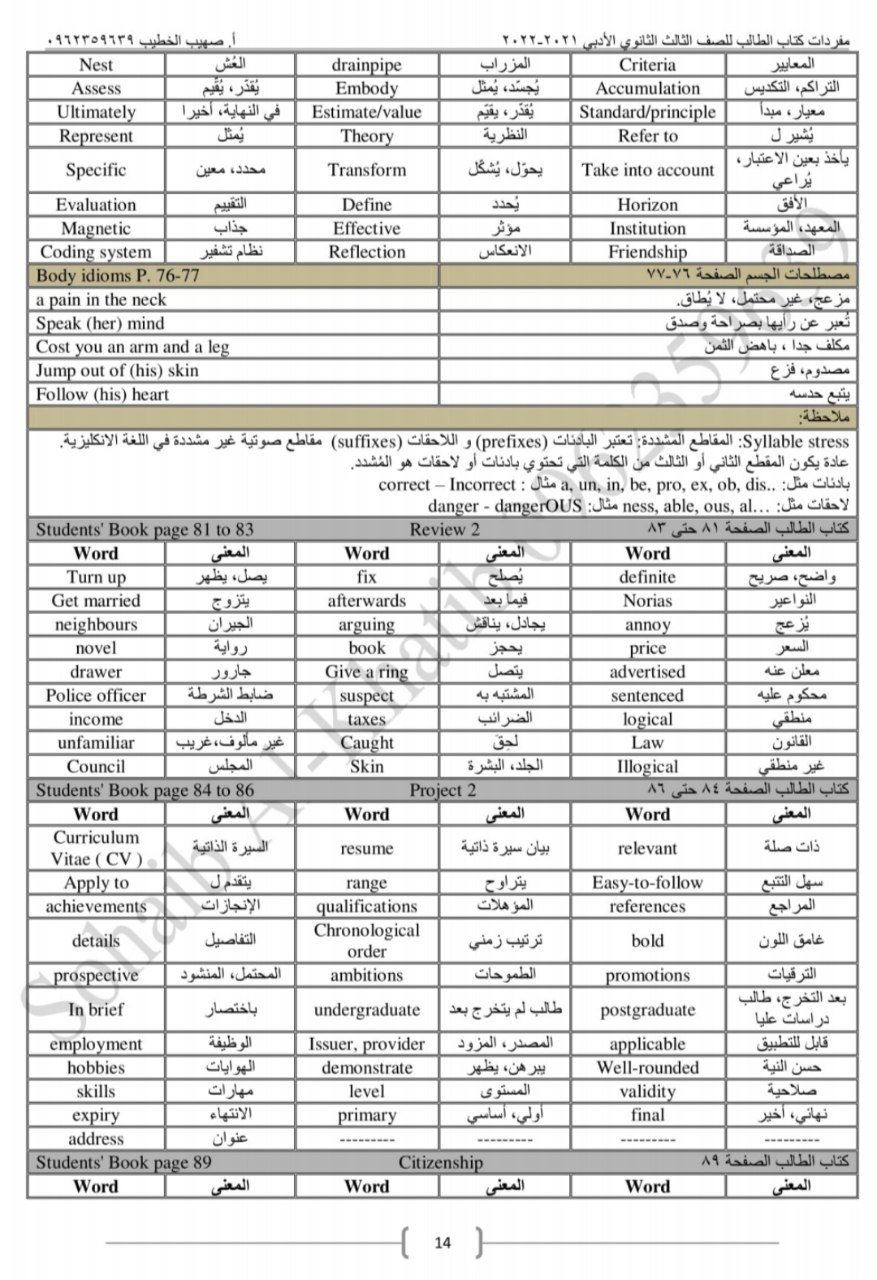 مفردات كتاب الطالب للصف الثالث الثانوي الأدبي ٢٠٢١-٢٠٢٢ أ. صهيب الخطيب ٠٩٦٢٣٥٩٦٣٩
Nest العُش drainpipe المزراب Criteria المعايير
Assess يُقدّر، يُقّيم Embody يُجسّد، يُمثل Accumulation التراكم، التكديس
Ultimately في النهاية، أخيرا Estimate/value يُقدّر، يقيّم Standard/principle معيار، مبدأ
Represent يُمثل Theory النظرية Refer to يُشير ل
Specific محدد، معين Transform يحوّل، يُشكّل Take into account يأخذ بعين الاعتبار، يُراعي
Evaluation التقييم Define يُحدد Horizon الأفق
Magnetic جذاب Effective مؤثر Institution المعهد، المؤسسة
Coding system نظام تشفير Reflection الانعكاس Friendship الصداقة
Body idioms P. 76-77 مصطلحات الجسم الصفحة ٧٦-٧٧
a pain in the neck مزعج، غير محتمل، لا يُطاق.
Speak (her) mind تُعبر عن رأيها بصراحة وصدق
Cost you an arm and a leg مكلف جدا ، باهض الثمن
Jump out of (his) skin مصدوم، فزع
Follow (his) heart يتبع حدسه
ملاحظة:
Syllable stress: المقاطع المشددة: تعتبر البادئات (prefixes) و اللاحقات (suffixes) مقاطع صوتية غير مشددة في اللغة الانكليزية.
عادة يكون المقطع الثاني أو الثالث من الكلمة التي تحتوي بادئات أو لاحقات هو المُشدد.
بادئات مثل: ..a, un, in, be, pro, ex, ob, dis مثال : correct – Incorrect
لاحقات مثل: …ness, able, ous, al مثال: danger - dangerOUS
Students' Book page 81 to 83 Review 2 كتاب الطالب الصفحة ٨١ حتى ٨٣
Word المعنى Word المعنى Word المعنى
Turn up يصل، يظهر fix يُصلح definite واضح، صريح
Get married يتزوج afterwards فيما بعد Norias النواعير
neighbours الجيران arguing يجادل، يناقش annoy يُزعج
novel رواية book يحجز price السعر
drawer جارور Give a ring يتصل advertised معلن عنه
Police officer ضابط الشرطة suspect المشتبه به sentenced محكوم عليه
income الدخل taxes الضرائب logical منطقي
unfamiliar غير مألوف،غريب Caught لحِقَ Law القانون
Council المجلس Skin الجلد، البشرة Illogical غير منطقي
Students' Book page 84 to 86 Project 2 كتاب الطالب الصفحة ٨٤ حتى ٨٦
Word المعنى Word المعنى Word المعنى
Curriculum Vitae ( CV ) السيرة الذاتية resume بيان سيرة ذاتية relevant ذات صلة
Apply to يتقدم ل range يتراوح Easy-to-follow سهل التتبع
achievements الإنجازات qualifications المؤهلات references المراجع
details التفاصيل Chronological order ترتيب زمني bold غامق اللون
prospective المحتمل، المنشود ambitions الطموحات promotions الترقيات
In brief باختصار undergraduate طالب لم يتخرج بعد postgraduate بعد التخرج، طالب دراسات عليا
employment الوظيفة Issuer, provider المصدر، المزود applicable قابل للتطبيق
hobbies الهوايات demonstrate يبرهن، يظهر Well-rounded حسن النية
skills مهارات level المستوى validity صلاحية
expiry الانتهاء primary أولي، أساسي final نهائي، أخير
address عنوان --------- --------- --------- ---------
Students' Book page 89 Citizenship كتاب الطالب الصفحة ٨٩
Word المعنى Word المعنى Word المعنى
14
Sohaib Al-Khatib 0962359639